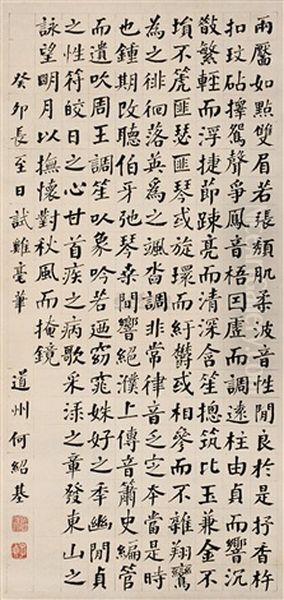 兩靨如點雙眉若張頹肌柔波音性閒良於是抒香杵
扣玟砧擇鴛聲爭鳳音梧因虛而調遠柱由貞而響沉
散繁輕而浮捷節踈亮而清深含笙摠筑比玉兼金不
塤不篪匪瑟匪琴或旋環而紆欝或相參而不雜翔鴻
為之徘徊落英為之颯沓調非常律音乏定本當是時
也鍾期改聽伯牙弛琴桒閒響絕濮上傳音簫史編管
而遺吹周王調笙以象吟若迺窈窕姝好之季幽閒貞
之性符皎日之心甘首疾之病歌采淥之章發東山之
詠望明月以撫懷對秋風而掩鏡
癸卯長至日試雞毫筆
道州何紹基